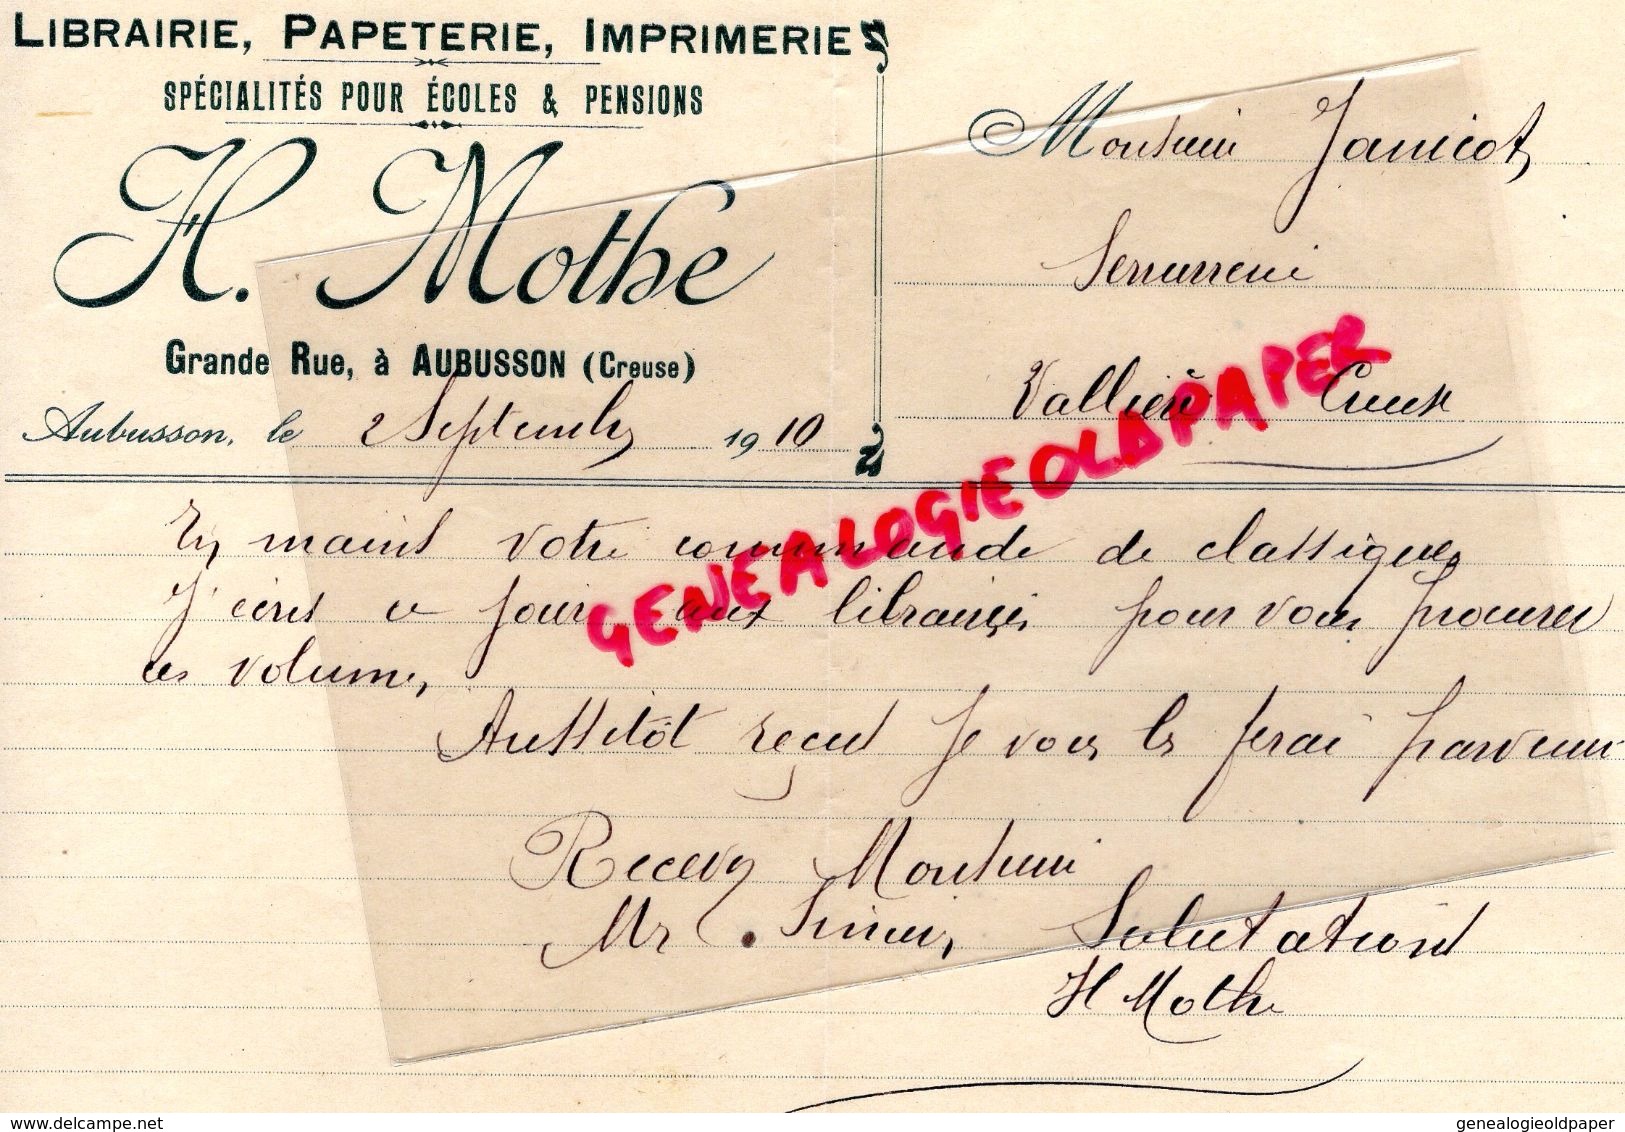 LIBRAIRIE, PAPETERIE, IMPRIMERIE
SPÉCIALITÉS POUR ÉCOLES & PENSIONS
H. Mothe
Grande Rue, à AUBUSSON (Creuse)
Aubusson, le 2 Septembre 1910
Monsieur Janicot
Serrurerie
Vallière Creuse
En mains votre commande de classiques
J'écris ce jour aux libraires pour vous procurer
ces volumes,
Aussitôt reçus je vous les ferai parvenir
Recevez Monsieur
Mes Salutations
H Mothe
GENEALOGIEOLDPAPER
delcampe.net
genealogieoldpaper